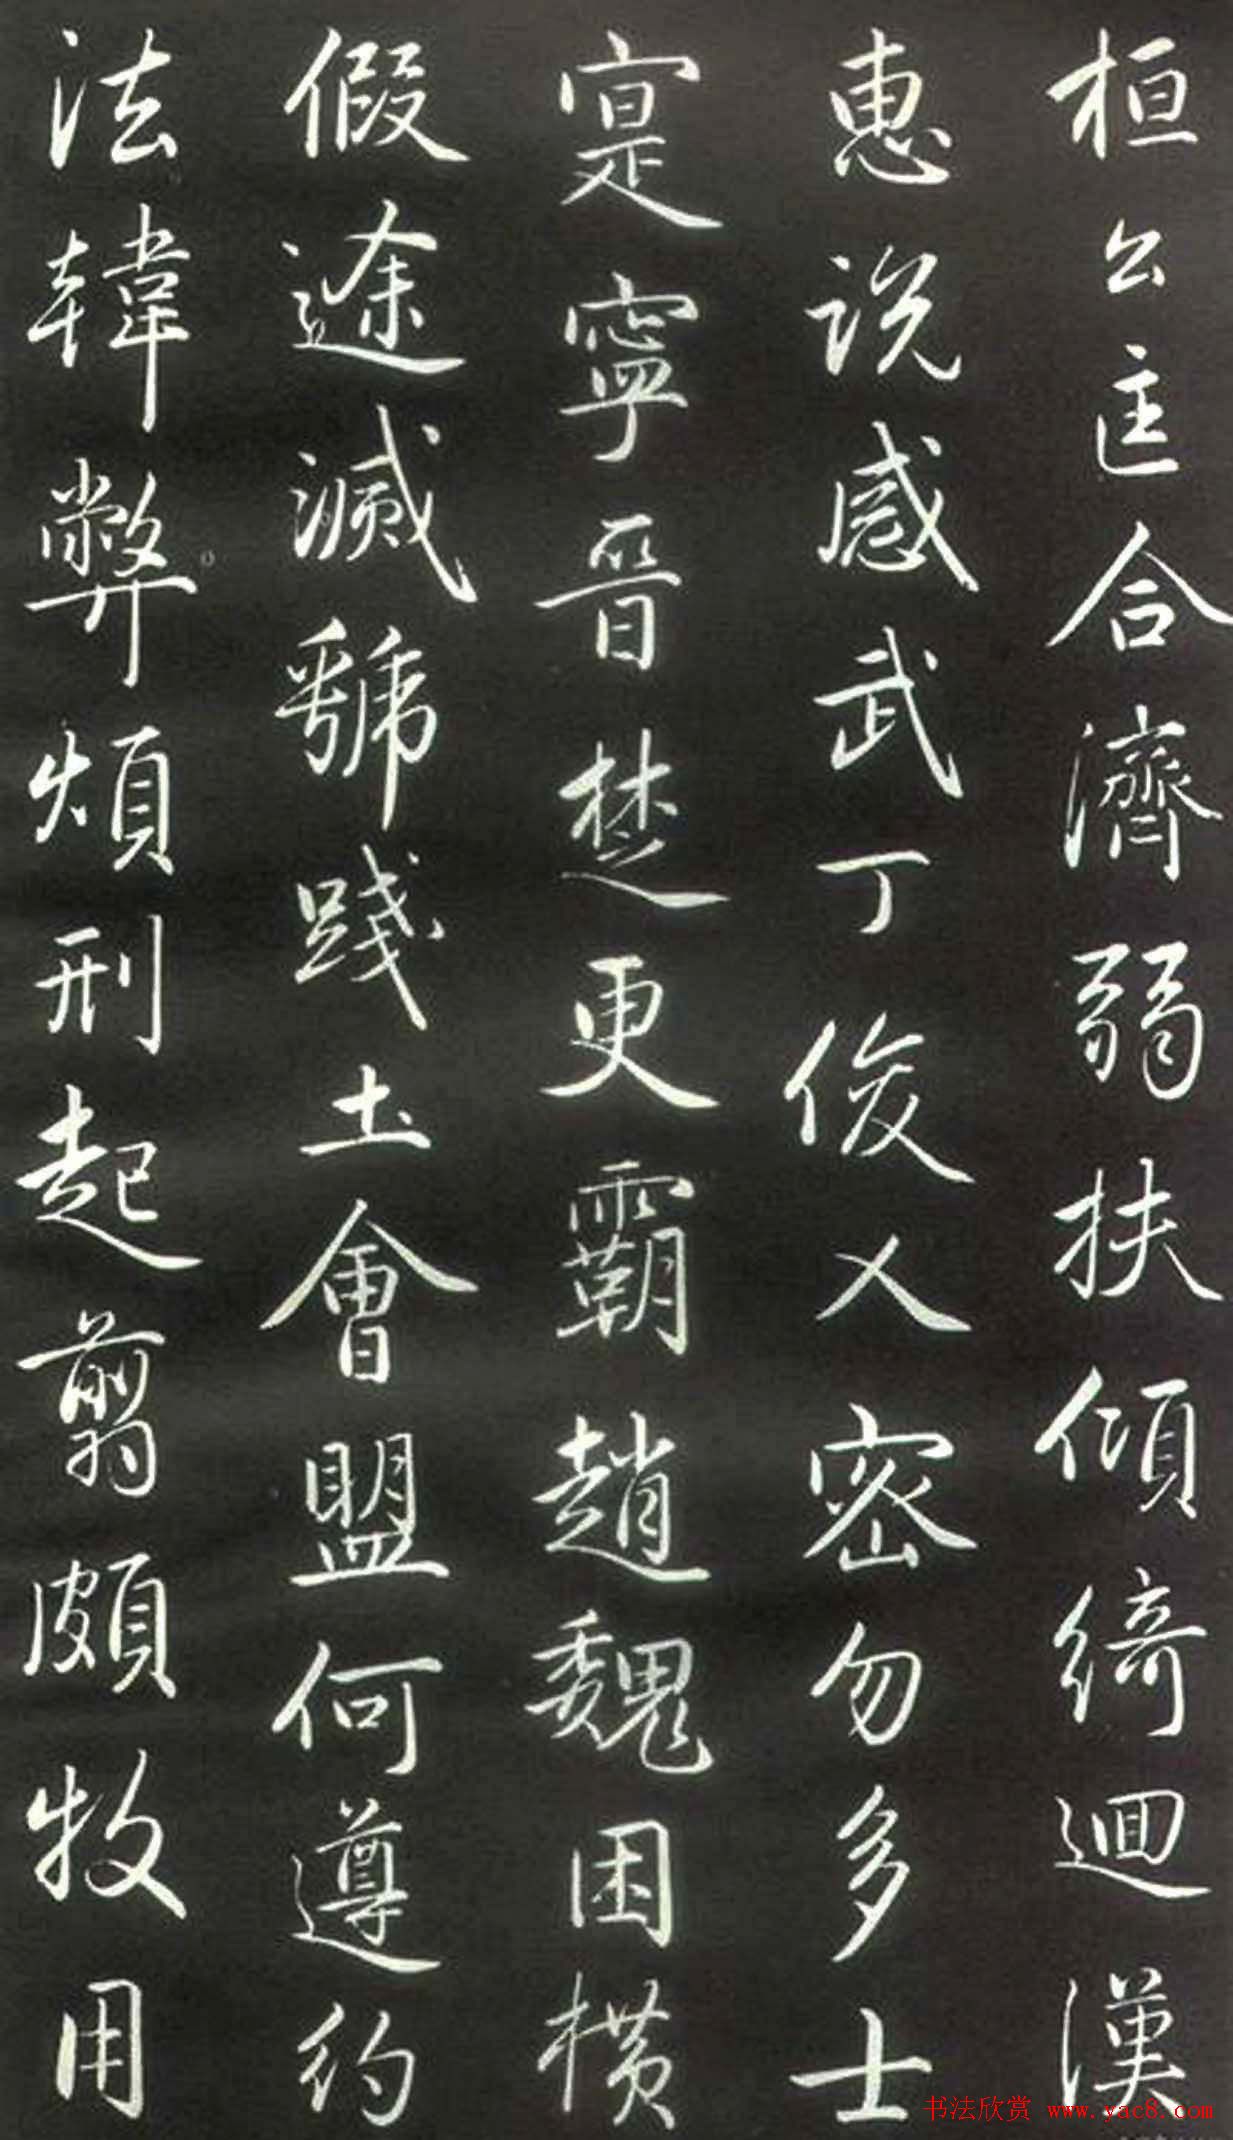 桓公匡合濟弱扶傾綺迴漢
惠説感武丁俊乂密勿多士
寔寧晉楚更霸趙魏困横
假途滅虢踐土會盟何遵約
法韓弊煩刑起翦頗牧用
书法欣赏 www.yac8.com